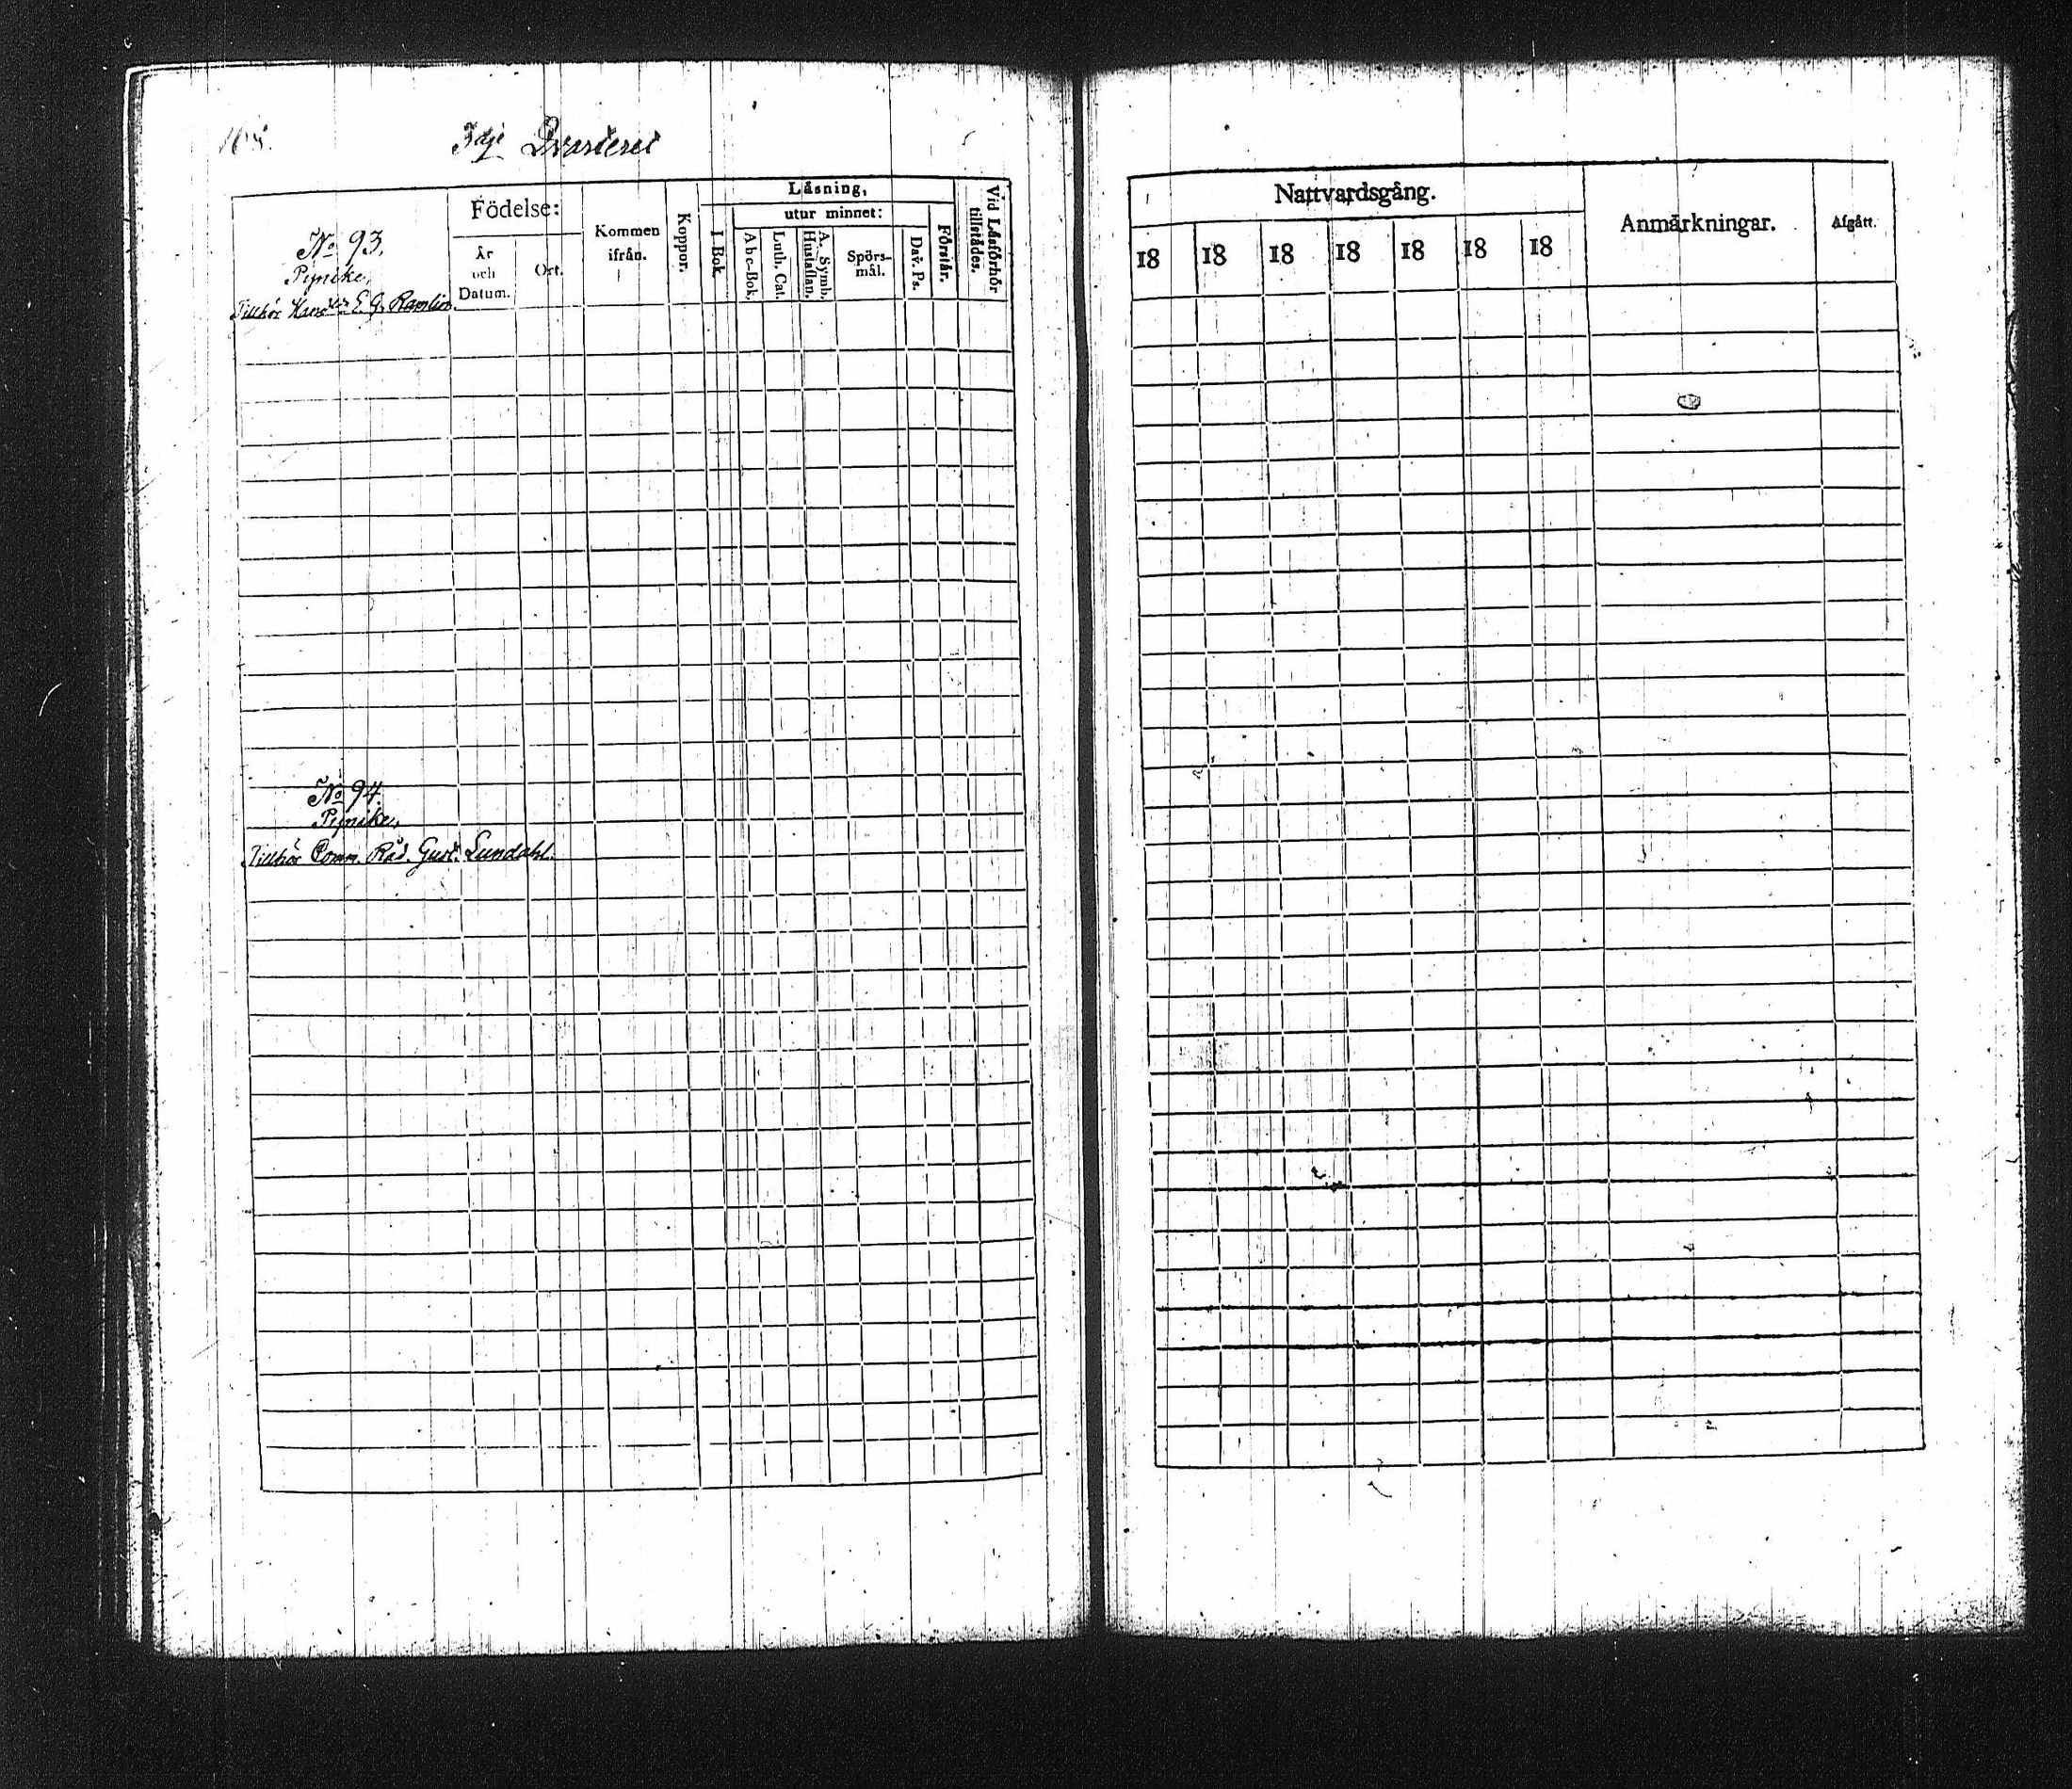 3dje Qvarteret
Födelse:
Kommen ifrån.
Koppor.
Läsning,
I Bok.
utur minnet:
Förstår.
Vid Läsförhör tillstädes.
År och Datum.
Ort.
Abc-Bok.
Luth. Cat.
A. Symb. Hustaflan.
Spörs-mål.
Dav. Ps.
No 93.
Pynike,
Tillhör E. G.
No 94.
Pynike,
Tillhör Comm. Råd. Gust. Lundahl.
Nattvardsgång.
Anmärkningar.
Afgått.
18 18 18 18 18 18 18